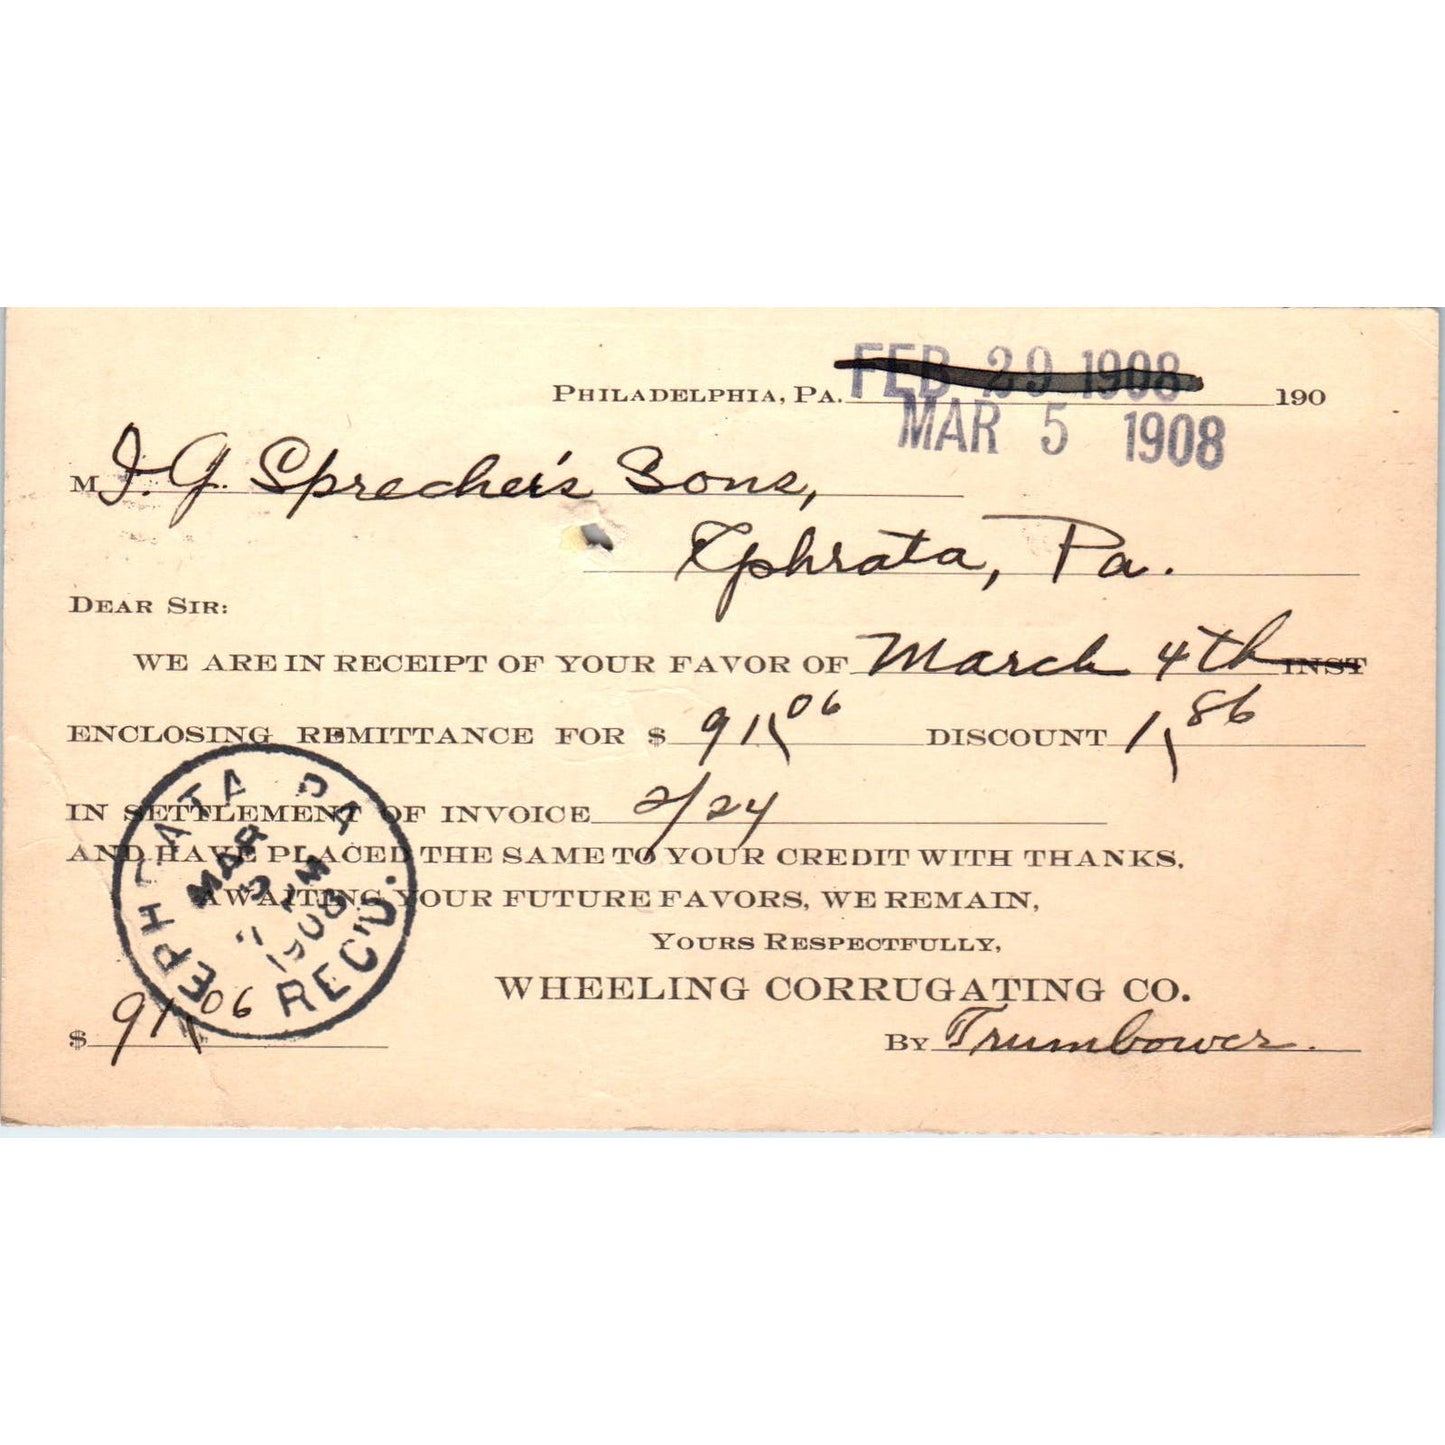 FEB 29 1908
PHILADELPHIA, PA. 190
MAR 5 1908
M J. G. Sprecher's Sons,
Ephrata, Pa.
DEAR SIR:
WE ARE IN RECEIPT OF YOUR FAVOR OF March 4th INST
ENCLOSING REMITTANCE FOR $ 91 06 DISCOUNT 1 86
IN SETTLEMENT OF INVOICE 2/24
AND HAVE PLACED THE SAME TO YOUR CREDIT WITH THANKS.
AWAITING YOUR FUTURE FAVORS, WE REMAIN,
YOURS RESPECTFULLY,
WHEELING CORRUGATING CO.
$ 91 06 BY Trumbower.
EPHRATA PA
MAR
1908
REC'D.